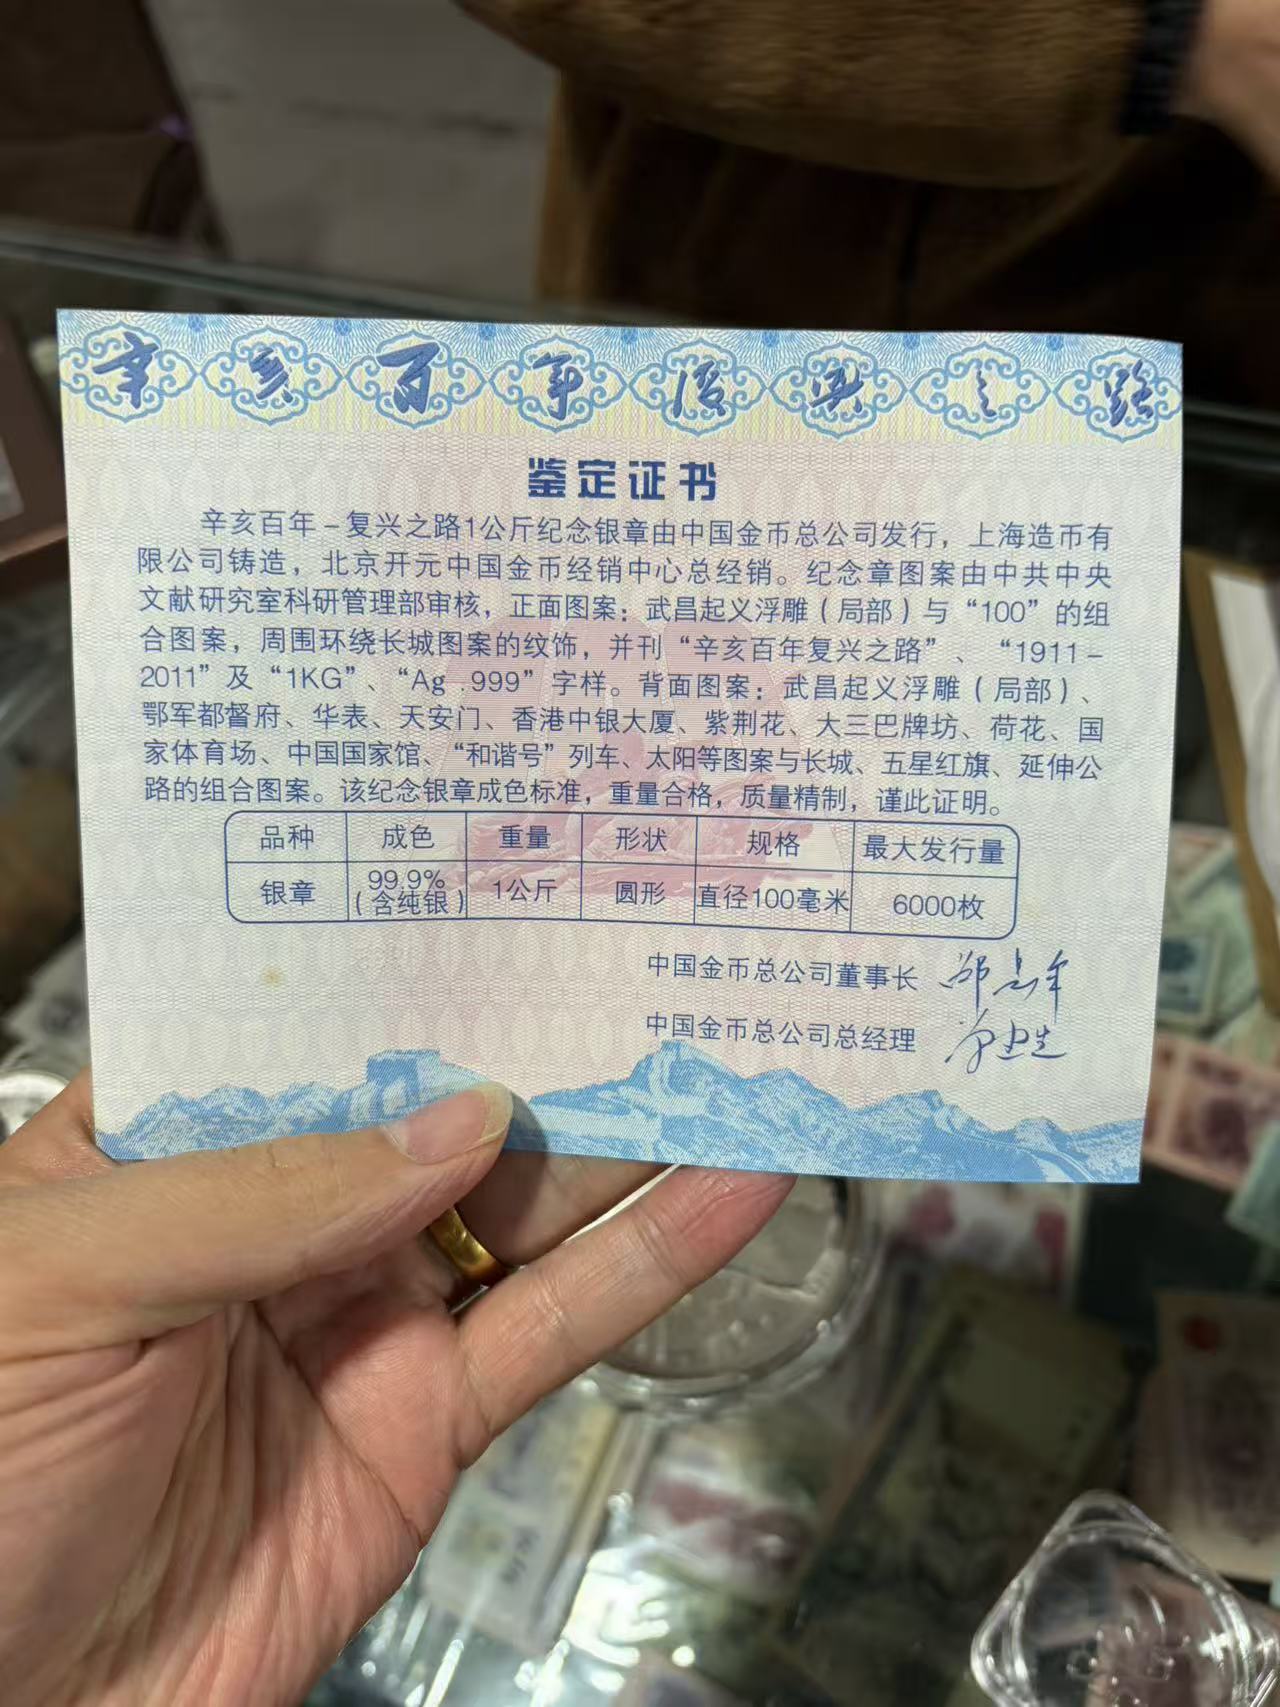 辛亥百年复兴之路
鉴定证书
辛亥百年-复兴之路1公斤纪念银章由中国金币总公司发行，上海造币有
限公司铸造，北京开元中国金币经销中心总经销。纪念章图案由中共中央
文献研究室科研管理部审核，正面图案：武昌起义浮雕（局部）与“100”的组
合图案，周围环绕长城图案的纹饰，并刊“辛亥百年复兴之路”、“1911-
2011”及“1KG”、“Ag .999”字样。背面图案：武昌起义浮雕（局部）、
鄂军都督府、华表、天安门、香港中银大厦、紫荆花、大三巴牌坊、荷花、国
家体育场、中国国家馆、“和谐号”列车、太阳等图案与长城、五星红旗、延伸公
路的组合图案。该纪念银章成色标准，重量合格，质量精制，谨此证明。
品种 成色 重量 形状 规格 最大发行量
银章 99.9%（含纯银） 1公斤 圆形 直径100毫米 6000枚
中国金币总公司董事长
中国金币总公司总经理